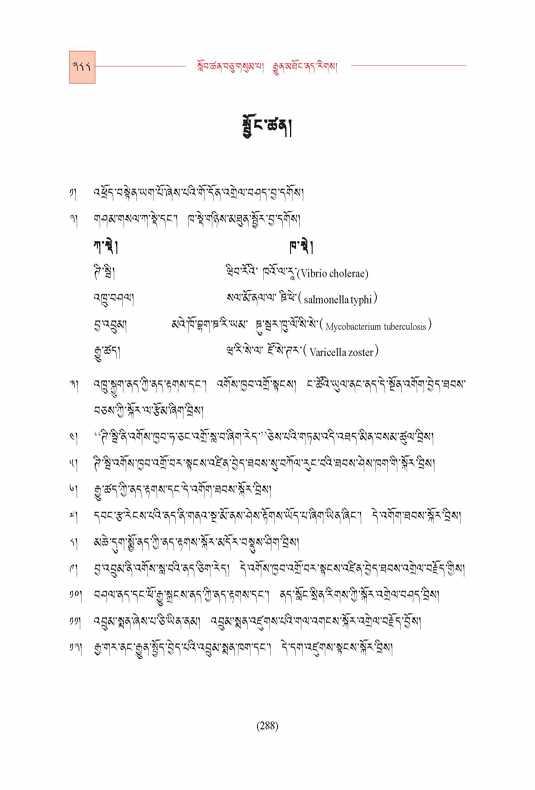 ༢༨༨ སློབ་ཚན་བཅུ་གསུམ་པ། རྒྱུན་མཐོང་ནད་རིགས།
སྦྱོང་ཚན།
༡། འཕྲོད་བསྟེན་ཡག་པོ་ཞེས་པའི་གོ་དོན་འགྲེལ་བཤད་བྱ་དགོས།
༢། གཤམ་གསལ་ཀ་སྡེ་དང་། ཁ་སྡེ་གཉིས་མཐུན་སྦྱོར་བྱ་དགོས།
ཀ་སྡེ། ཁ་སྡེ།
(Vibrio cholerae)
འཁྲུ་བཤལ། སལ་མོ་ནལ་ལ་ ཊི་ཕེ་( salmonella typhi )
བྱ་འབྲུམ། ( Mycobacterium tuberculosis )
རྒྱུ་ཚད། ( Varicella zoster )
༣། འཁྲུ་སྐྱུག་ནད་ཀྱི་ནད་རྟགས་དང་། འགོས་ཁྱབ་འགྲོ་སྟངས། ང་ཚོའི་ཡུལ་ནང་ནད་དེ་སྔོན་འགོག་བྱེད་ཐབས་
བཅས་ཀྱི་སྐོར་ལ་རྩོམ་ཞིག་བྲིས།
༤། “ཊི་སྦི་ནི་འགོས་ཁྱབ་ཧ་ཅང་འགྲོ་སླ་བ་ཞིག་རེད་”ཅེས་པའི་གཏམ་འདི་འཐད་མིན་བསམ་ཚུལ་བྲིས།
༥། ཊི་སྦི་འགོས་ཁྱབ་འགྲོ་བར་སྟངས་འཛིན་བྱེད་ཐབས་སུ་བཀོལ་རུང་བའི་ཐབས་ཤེས་ཁག་གི་སྐོར་བྲིས།
༦། རྒྱུ་ཚད་ཀྱི་ནད་རྟགས་དང་དེ་འགོག་ཐབས་སྐོར་བྲིས།
༧། དབང་རྩ་རེངས་པའི་ནད་ནི་གནའ་སྔ་མོ་ནས་ཤེས་རྟོགས་ཡོད་པ་ཞིག་ཡིན་ཞིང་། དེ་འགོག་ཐབས་སྐོར་བྲིས།
༨། མཆེ་དུག་སྨྱོ་ནད་ཀྱི་ནད་རྟགས་སྐོར་མདོར་བསྡུས་ཤིག་བྲིས།
༩། བྱ་འབྲུམ་ནི་འགོས་སླ་བའི་ནད་ཅིག་རེད། དེ་འགོས་ཁྱབ་འགྲོ་བར་སྟངས་འཛིན་བྱེད་ཐབས་འགྲེལ་བརྗོད་གྱིས།
༡༠། བཤལ་ནད་དང་ཕོ་རྒྱུ་སྐྲངས་ནད་ཀྱི་ནད་རྟགས་དང་། ནད་སློང་སྲིན་རིགས་ཀྱི་སྐོར་འགྲེལ་བཤད་བྲིས།
༡༡། འབྲུམ་སྨན་ཞེས་པ་ཅི་ཡིན་ནམ། འབྲུམ་སྨན་འཛུགས་པའི་གལ་འགངས་སྐོར་འགྲེལ་བརྗོད་བྲོས།
༡༢། རྒྱ་གར་ནང་རྒྱུན་སྤྱོད་བྱེད་པའི་འབྲུམ་སྨན་ཁག་དང་། དེ་དག་འཛུགས་སྟངས་སྐོར་བྲིས།
(288)